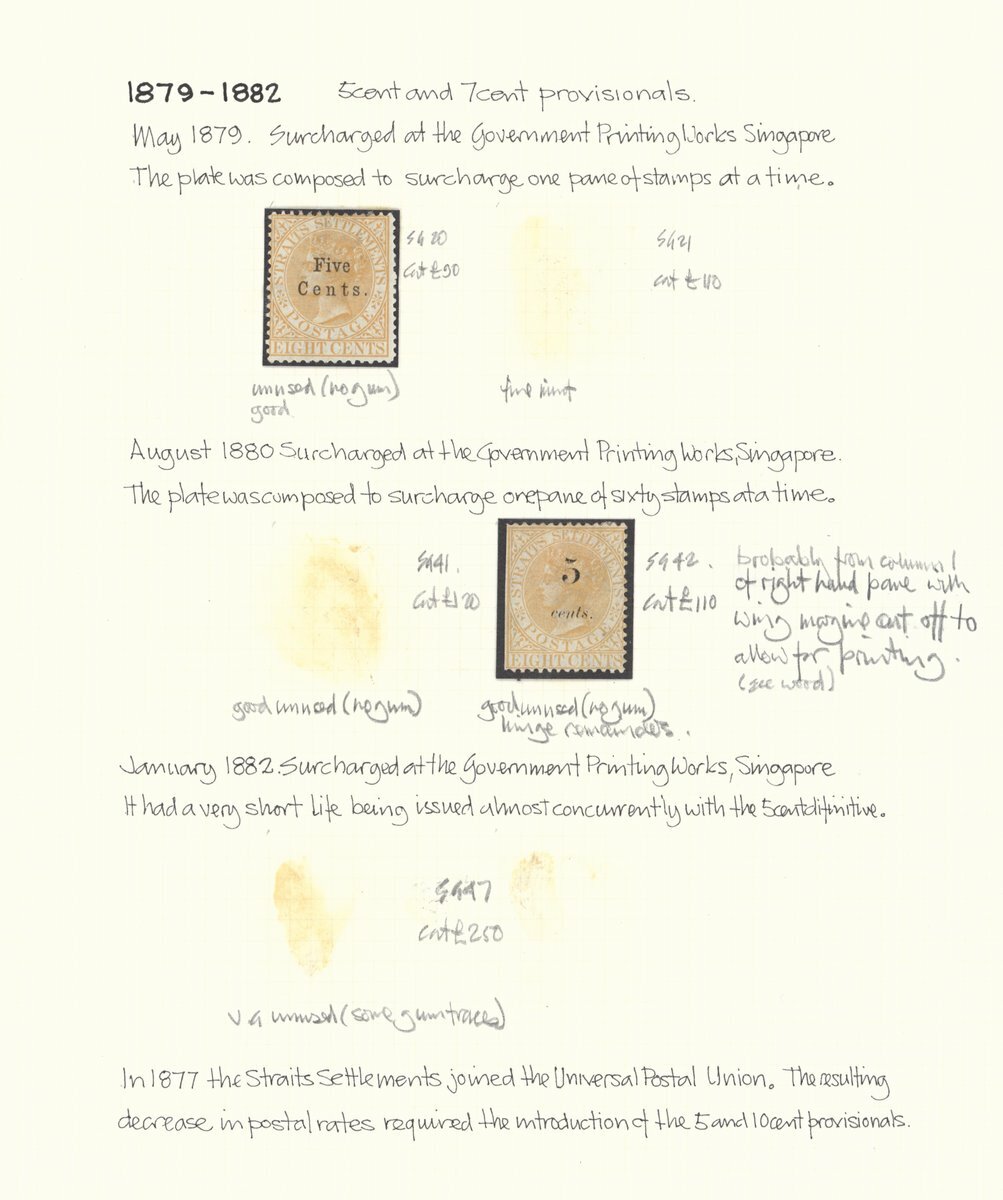 1879-1882 5cent and 7cent provisionals.
May 1879. Surcharged at the Government Printing Works Singapore
The plate was composed to surcharge one pane of stamps at a time.
STRAITS SETTLEMENTS
Five
Cents.
POSTAGE
EIGHT CENTS
SG 20
Cat £90
SG21
Cat £110
unused (no gum)
good
fine mint
August 1880 Surcharged at the Government Printing Works, Singapore.
The plate was cumposed to surcharge one pane of sixty stamps at a time.
SG41.
Cat £120
STRAITS SETTLEMENTS
5
cents.
POSTAGE
EIGHT CENTS
SG42.
Cat £110
probably from column 1
of right hand pane with
wing margine cut off to
allow for printing.
(see wood)
good unused (no gum)
good unused (no gum)
hinge remainders.
January 1882. Surcharged at the Government Printing Works, Singapore
It had a very short life being issued almost concurrently with the 5cent difinitive.
SG47
Cat £250
V G unused (some gum traces)
In 1877 the Straits Settlements joined the Universal Postal Union. The resulting
decrease in postal rates required the introduction of the 5 and 10cent provisionals.